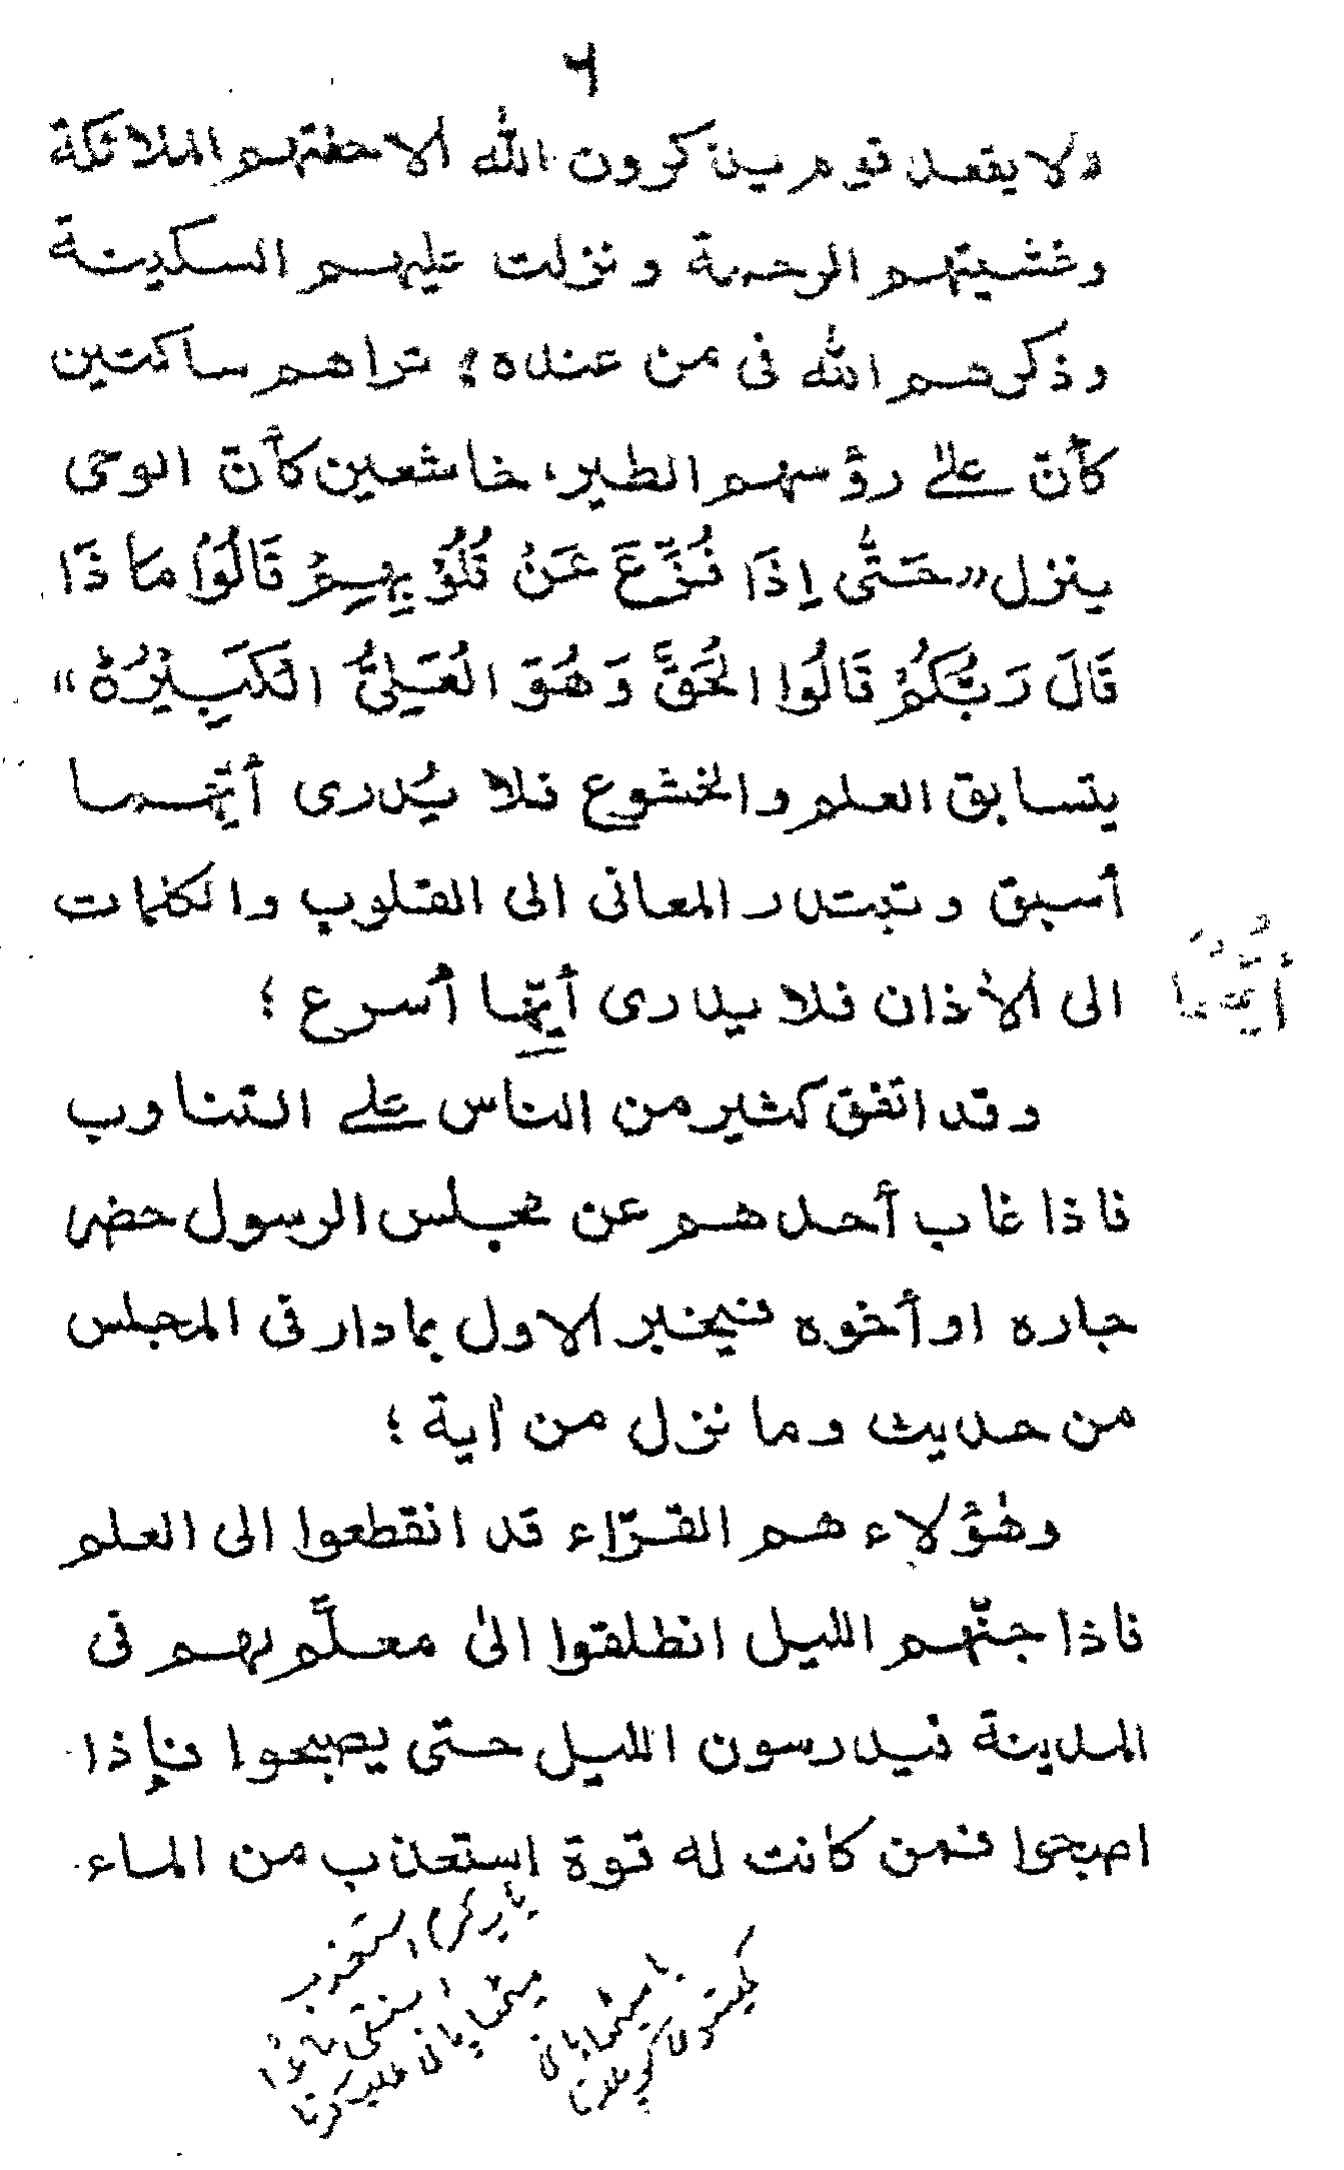 ٦
ولا يقعد قوم يذكرون الله الا حفتهم الملائكة
وغشيتهم الرحمة و نزلت عليهم السكينة
وذكرهم الله فى من عنده؛ تراهم ساكتين
كأنّ علىٰ رؤسهم الطير، خاشعين كأنّ الوحى
ينزل «حَتّٰى اِذَا فُزِّعَ عَنْ قُلُوْبِهِمْ قَالُوْا مَا ذَا
قَالَ رَبُّكُمْ قَالُوا الْحَقَّ وَهُوَ الْعَلِىُّ الْكَبِيْرُ ۝»
يتسابق العلم والخشوع فلا يُدرى أيّهما
أسبق و تبتدر المعانى الى القلوب والكلمات
الى الآذان فلا يدرى أيّها أسرع ؛
أيُّهُمَا
وقد اتفق كثير من الناس علے التناوب
فاذا غاب أحدهم عن مجلس الرسول حضر
جاره او أخوه فيخبر الاول بما دار فى المجلس
من حديث وما نزل من آية ؛
وهٰؤلاء هم القرّاء قد انقطعوا الى العلم
فاذا جنّهم الليل انطلقوا الىٰ معلَّم لهم فى
المدينة فيدرسون الليل حتى يصبحوا فإذا
اصبحوا فمن كانت له قوة استعذب من الماء